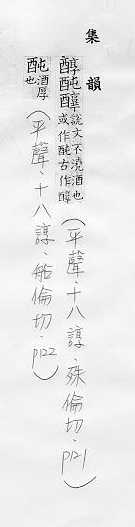 集韻
醇醕𨢩說文不澆酒也或作醕古作𨢩(平聲.十八諄.殊倫切.p121)
酏酒厚也(平聲.十八諄.船倫切.p122)